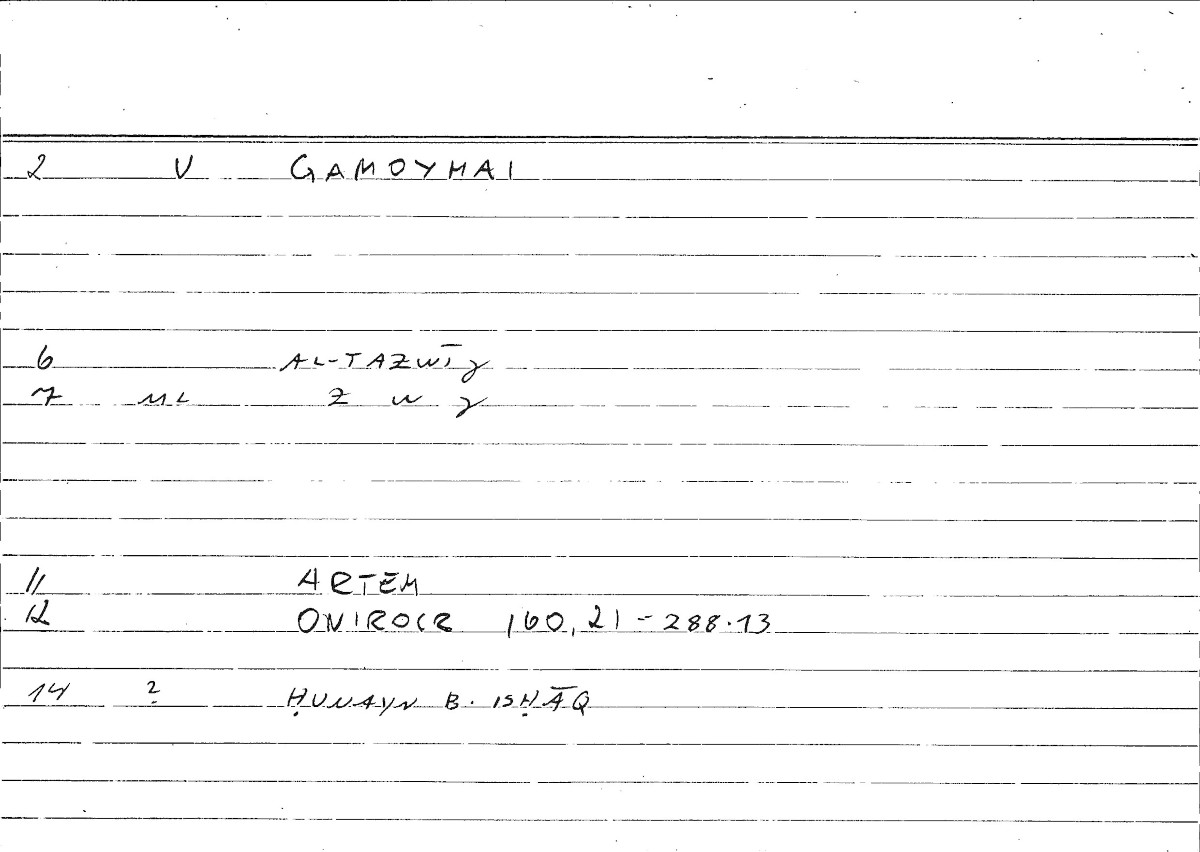 2 V GAMOYMAI
6 AL-TAZWĪJ
7 ML Z W J
11 ARTEM
12 ONIROCR 160,21-288.13
14 ? ḤUNAYN B. ISḤĀQ